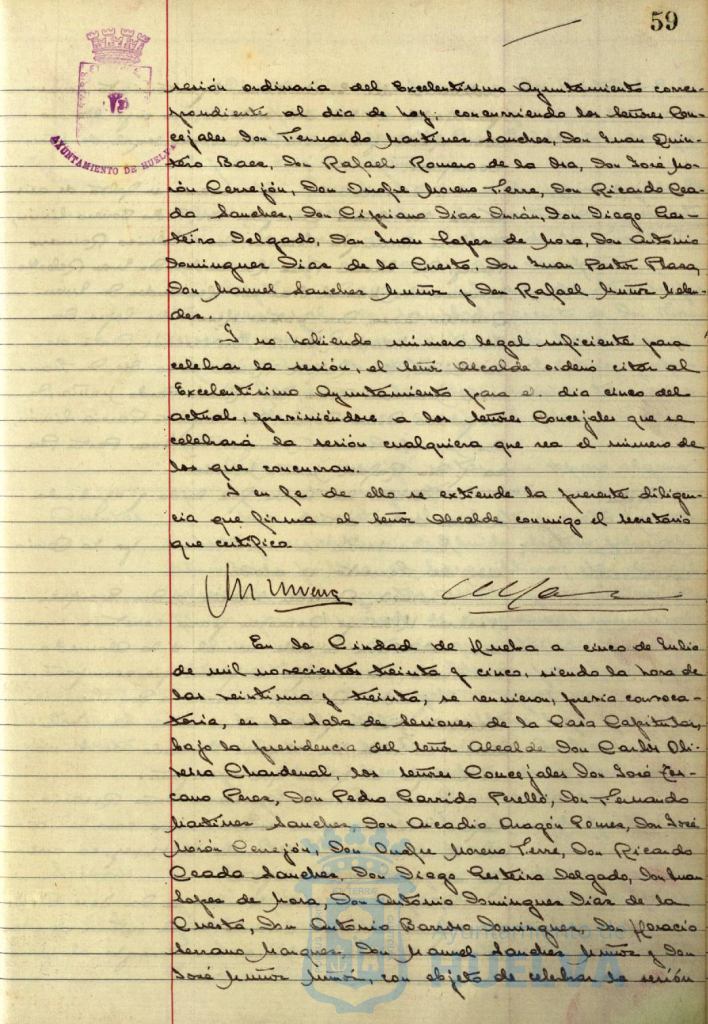 59
AYUNTAMIENTO DE HUELVA
sesión ordinaria del Excelentísimo Ayuntamiento corres-
pondiente al dia de hoy; concurriendo los Señores Con-
cejales Don Fernando Martinez Sanchez, Don Juan Quin-
tero Baez, Don Rafael Romero de la Osa, Don José Mo-
rón Cerrejón, Don Onofre Moreno Terre, Don Ricardo Cea-
da Sanchez, Don Cipriano Diaz Durán, Don Diego Ges-
teira Delgado, Don Juan Lopez de Mora, Don Antonio
Dominguez Diaz de la Cuesta, Don Juan Pastor Plaza,
Don Manuel Sanchez Muñoz y Don Rafael Muñoz Melen-
dez.
Y no habiendo número legal suficiente para
celebrar la sesión, el señor Alcalde ordenó citar al
Excelentísimo Ayuntamiento para el dia cinco del
actual, previniéndose a los Señores Concejales que se
celebrará la sesión cualquiera que sea el número de
los que concurran.
Y en fe de ello se extiende la presente diligen-
cia que firma el Señor Alcalde conmigo el Secretario
que certifica.
En la Ciudad de Huelva a cinco de Julio
de mil novecientos treinta y cinco, siendo la hora de
las veintiuna y treinta, se reunieron, previa convoca-
toria, en la Sala de Sesiones de la Casa Capitular,
bajo la presidencia del Señor Alcalde Don Carlos Oli-
veira Chardenal, los Señores Concejales Don José Les-
cano Perez, Don Pedro Garrido Perelló, Don Fernando
Martinez Sanchez, Don Arcadio Aragón Gomez, Don José
Morón Cerrejón, Don Onofre Moreno Terre, Don Ricardo
Ceada Sanchez, Don Diego Gesteira Delgado, Don Juan
Lopez de Mora, Don Antonio Dominguez Diaz de la
Cuesta, Don Antonio Barroso Dominguez, Don Horacio
Serrano Marquez, Don Manuel Sanchez Muñoz y Don
José Muñoz Muñoz, con objeto de celebrar la sesión